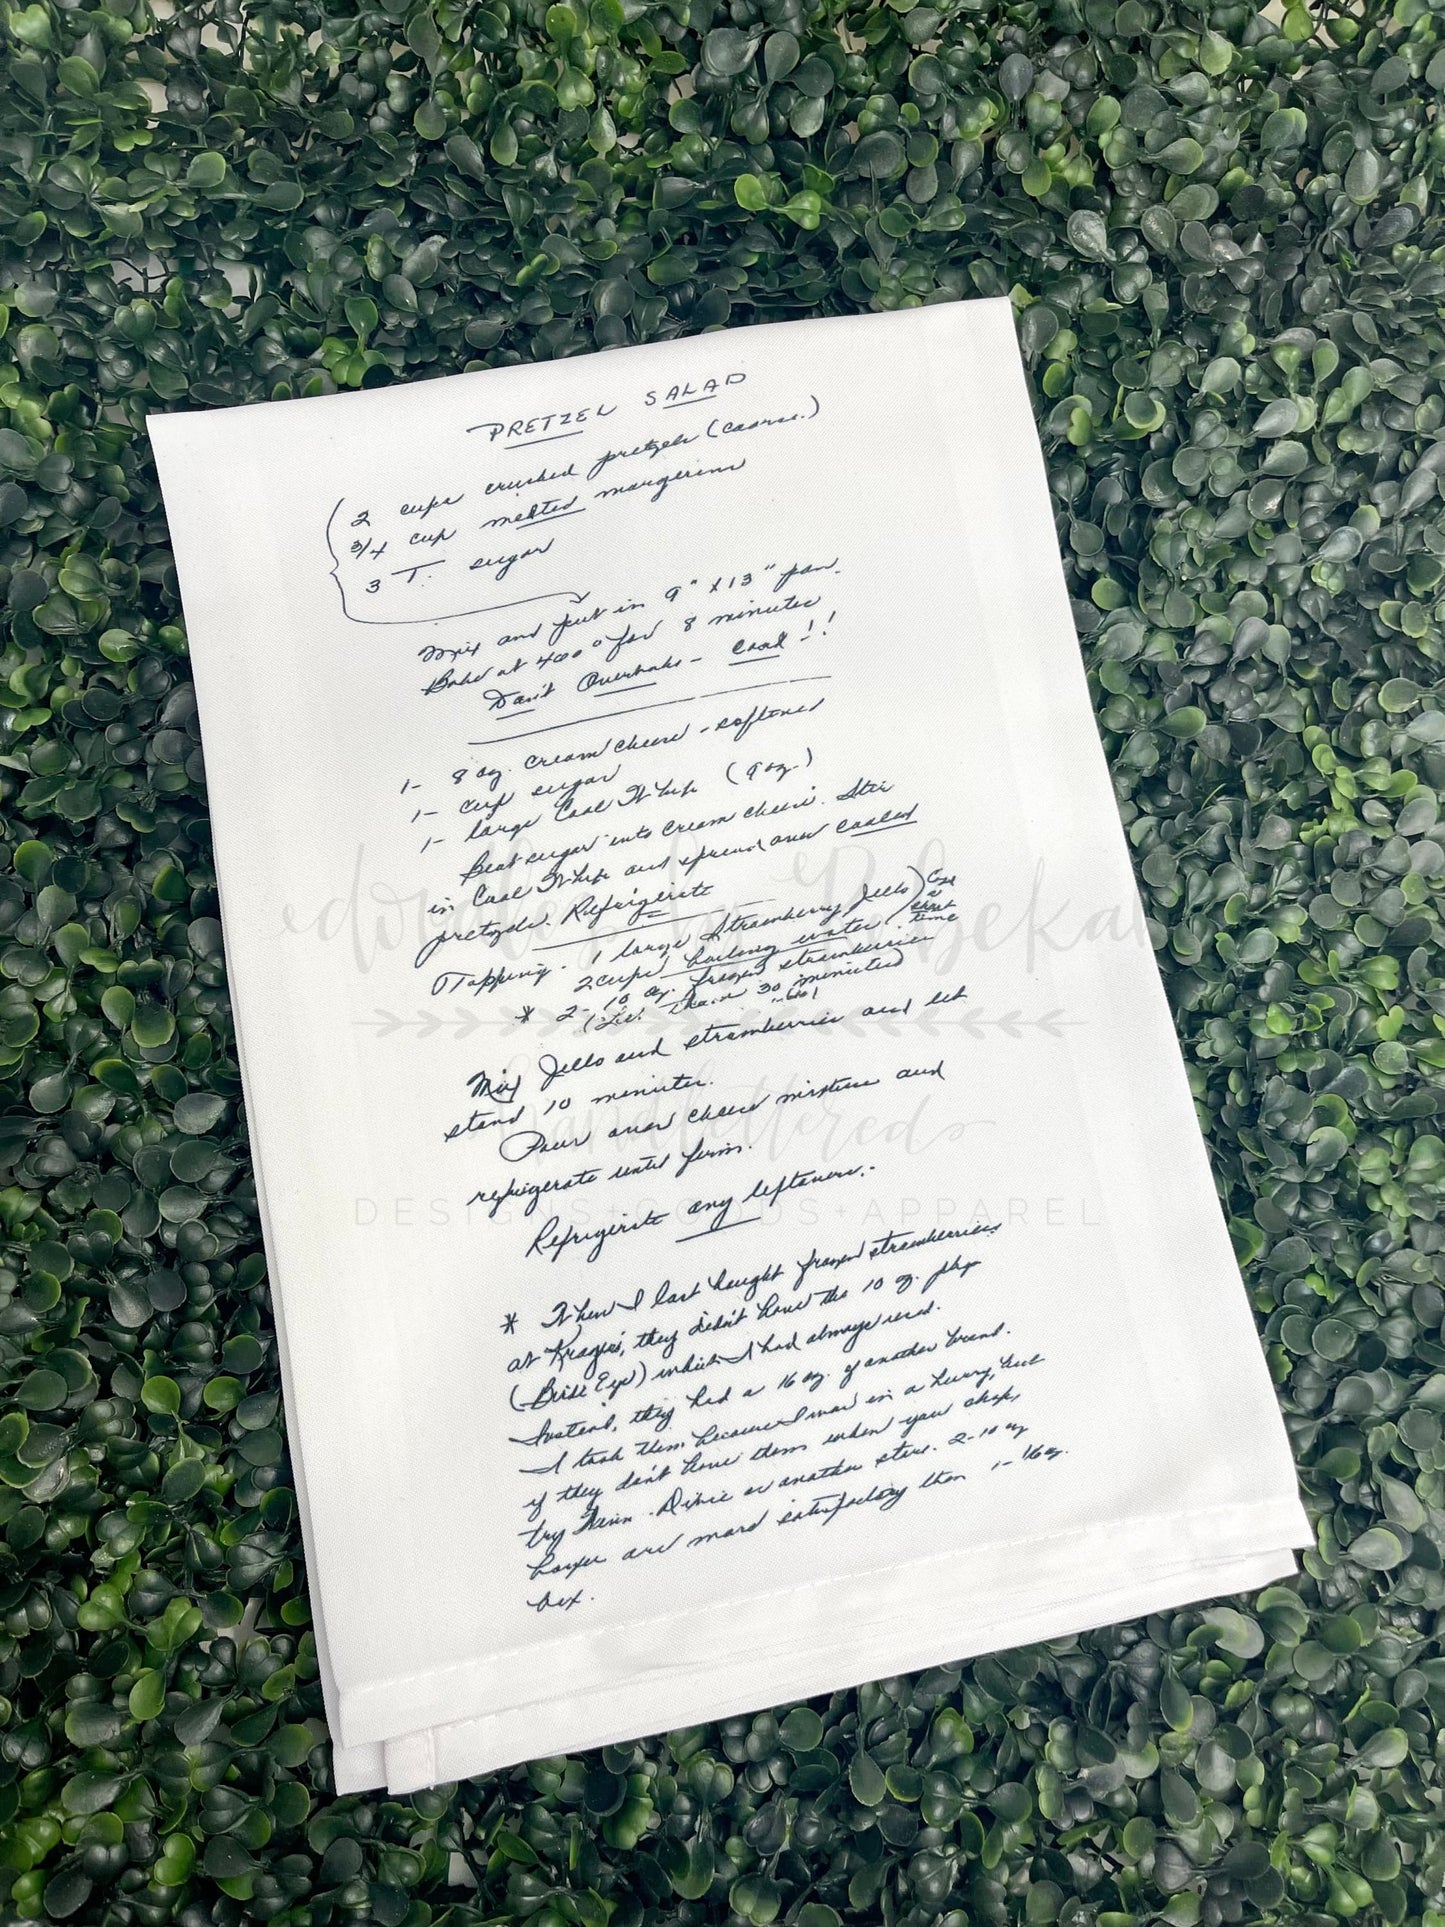 PRETZEL SALAD
2 cups crushed pretzels (coarse.)
3/4 cup melted margerine
3 T. sugar
Mix and put in 9" x 13" pan.
Bake at 400° for 8 minutes
Don't Overbake - Cool - !!
1- 8 oz. cream cheese - softened
1- cup sugar
1- large Cool Whip (9 oz.)
Beat sugar into cream cheese. Stir
in Cool Whip and spread over cooled
pretzels. Refrigerate
Topping - 1 large Strawberry Jello
2 cups boiling water
Cool a short time
* 2- 10 oz. frozen strawberries
than 30 minutes
Mix Jello and strawberries and let
stand 10 minutes.
Pour over cheese mixture and
refrigerate until firm.
Refrigerate any leftovers.-
* When I last bought frozen strawberries
at Krogers, they didn't have the 10 oz. pkgs
(Birds Eye) which I had always used.
Instead, they had a 16 oz. of another brand.
I took them because I was in a hurry, but
if they don't have them when you shop,
try or another store. 2-10 oz
boxes are more satisfactory than 1-16 oz.
box.
doodles by Rebekah
handlettered
DESIGNS + GOODS + APPAREL